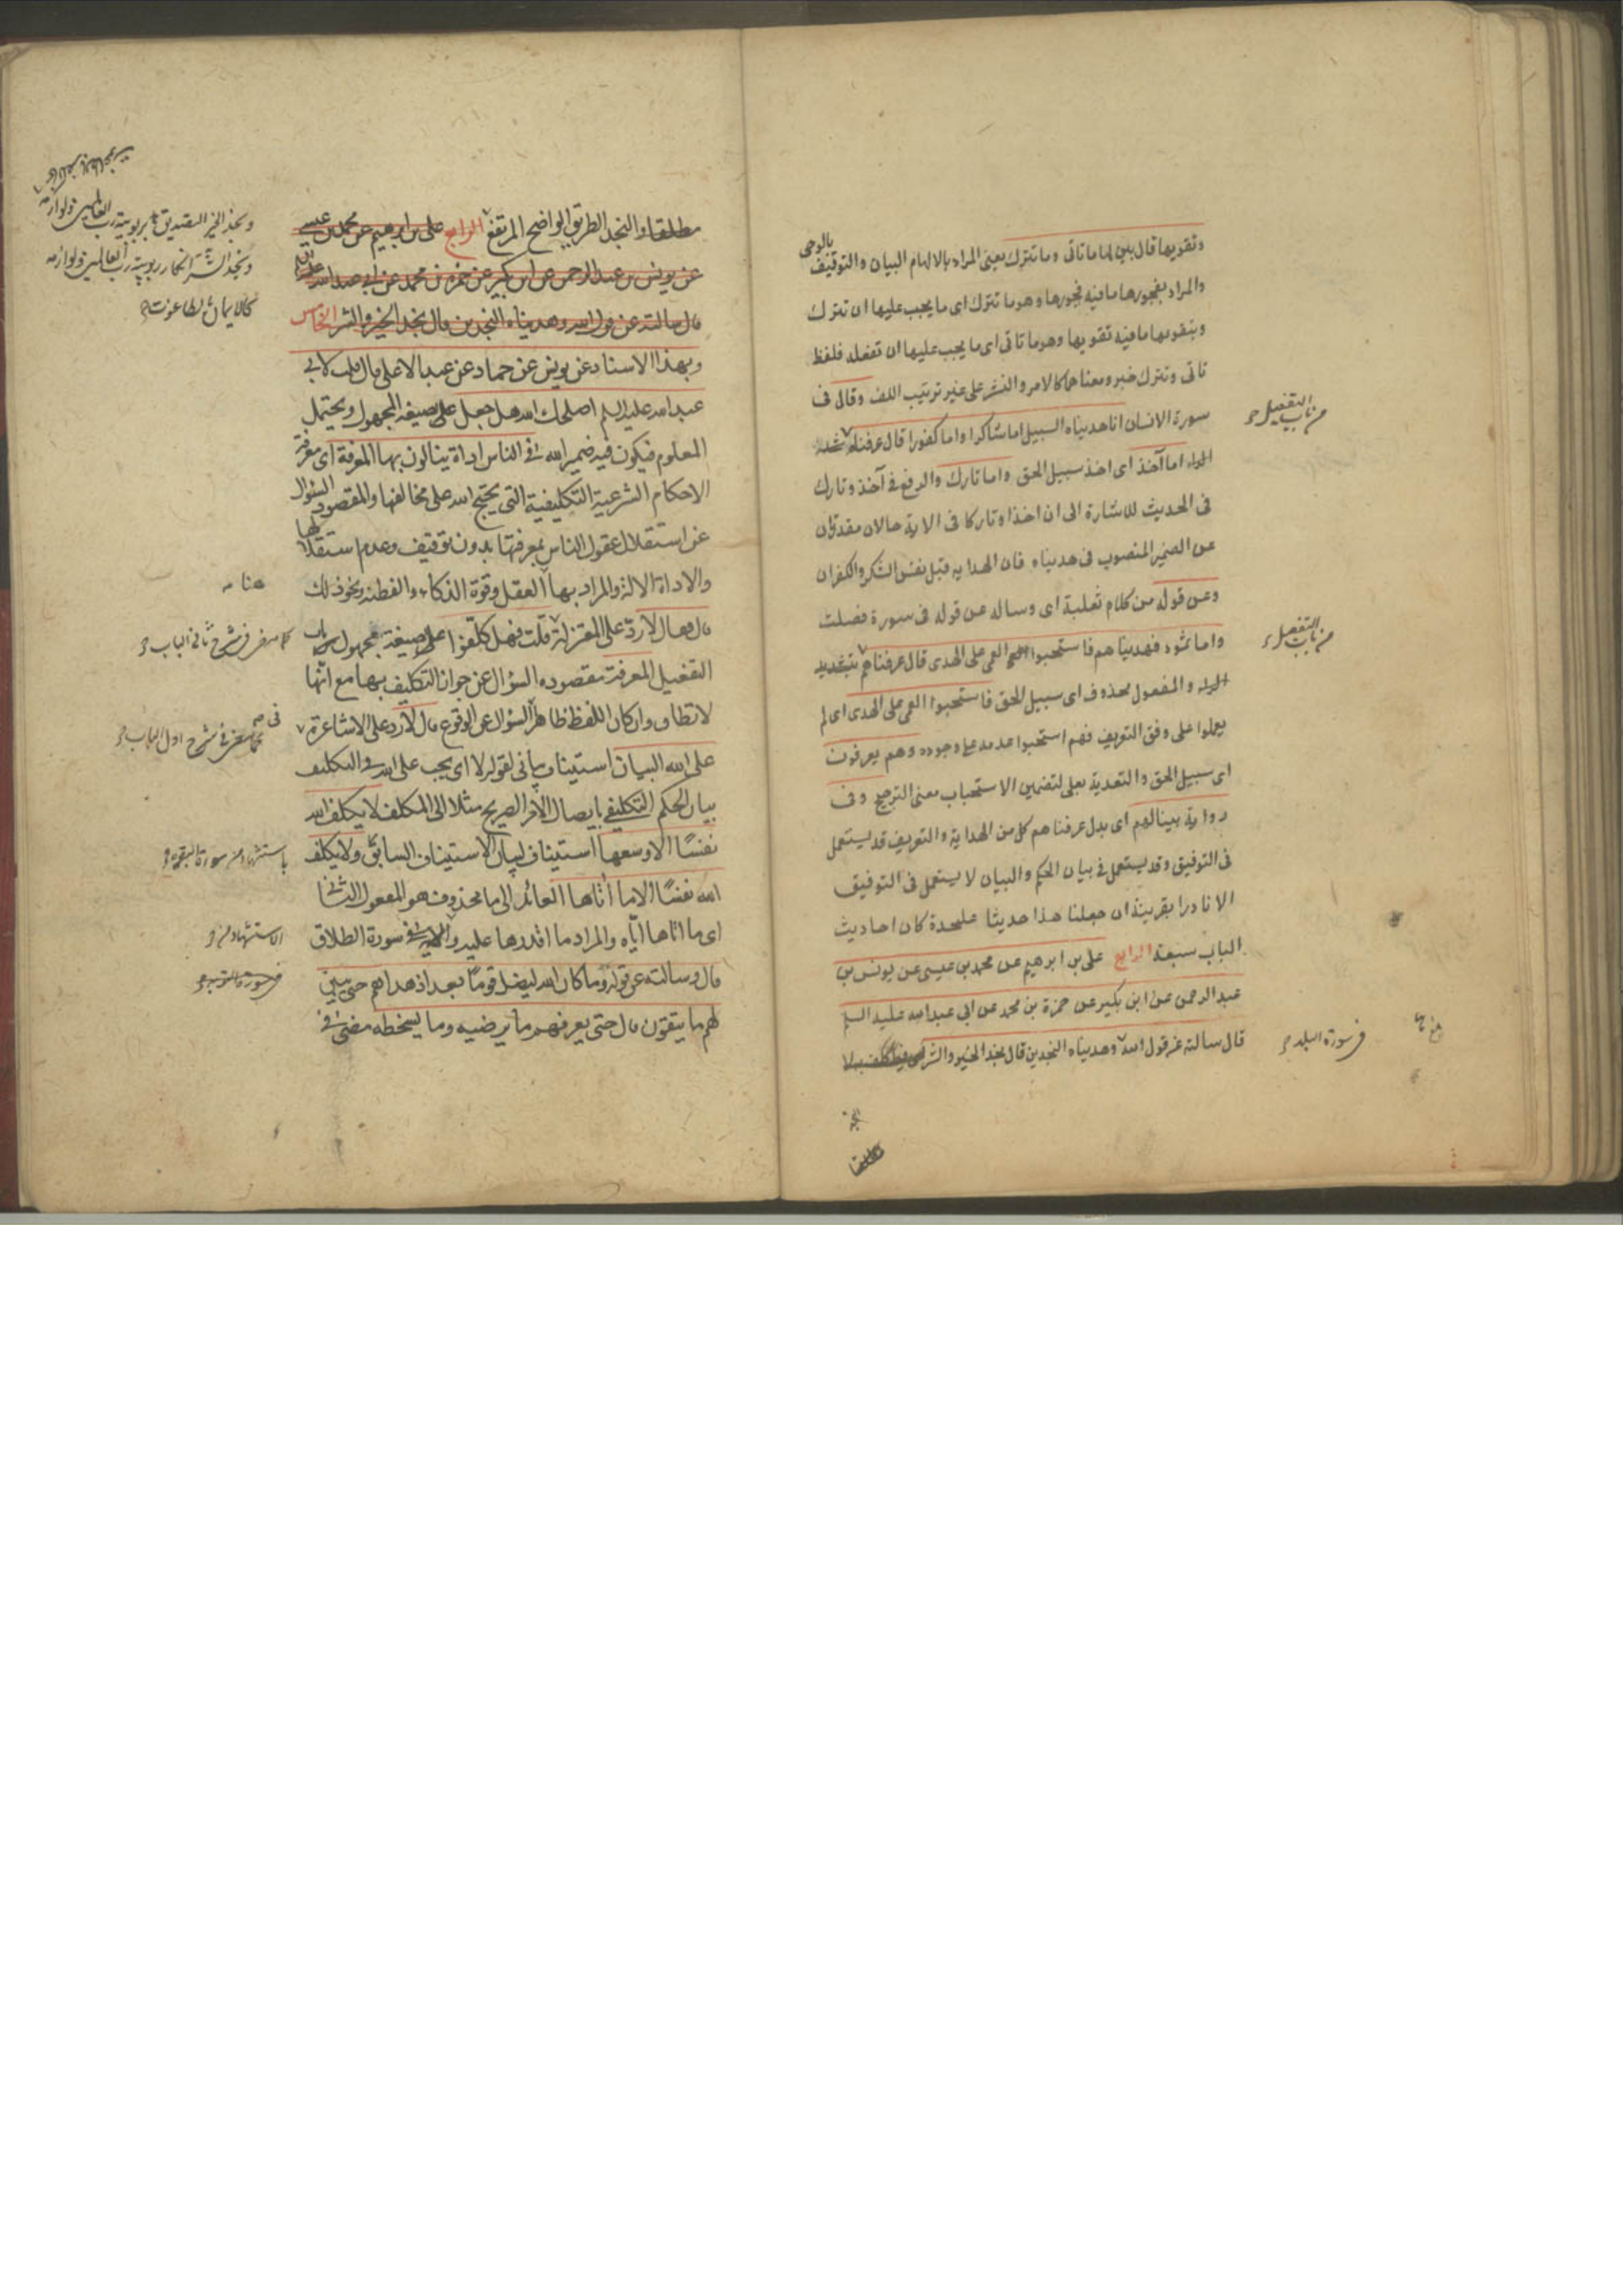 وتقويها قال بين لها ما تاتى وما تترك يعنى المراد بالالهام البيان والتوقيف
بالوحى
والمراد بفجورها ما فيه فجورها وهو ما تترك اى ما يجب عليها ان تترك
وبتقويها ما فيه تقويها وهو ما تاتى اى ما يجب عليها ان تفعله فلفظ
تاتى وتترك خبر ومعناهما كالامر والنشر على غير ترتيب اللف وقال فى
سورة الانسان انا هديناه السبيل اما شاكرا واما كفورا قال عرفناه
من باب التفعيل
اما آخذ اى اخذ سبيل الحق واما تارك والرفع فى آخذ وتارك
فى الحديث للاشارة الى ان اخذا وتاركا فى الاية حالان مقدرتان
عن الضمير المنصوب فى هديناه فان الهداية قبل نفس الشكر والكفران
وعن قوله من كلام ثعلبة اى وساله عن قوله فى سورة فصلت
واما ثمود فهديناهم فاستحبوا العمى على الهدى قال عرفناهم بتشديد
من باب التفعيل
الراء والمفعول محذوف اى سبيل الحق فاستحبوا العمى على الهدى اى لم
يعملوا على وفق التعريف فهم استحبوا عدمه على وجوده وهم يعرفون
اى سبيل الحق والتعدية بعلى لتضمين الاستحباب معنى الترجيح وفى
رواية بينا لهم اى بدل عرفناهم كل من الهداية والتعريف قد يستعمل
فى التوفيق وقد يستعمل فى بيان الحكم والبيان لا يستعمل فى التوفيق
الا نادرا بقرينة ان جعلنا هذا حديثا علىحدة كان احاديث
الباب سبعة الرابع على بن ابرهيم عن محمد بن عيسى عن يونس بن
عبد الرحمن عن ابن بكير عن حمزة بن محمد عن ابى عبد الله عليه السلم
قال سالته عن قول الله وهديناه النجدين قال نجد الخير والشر
فى سورة البلد
مطلقا والنجد الطريق الواضح المرتفع الرابع على بن ابرهيم عن محمد بن عيسى
ونجد الخير التصديق بربوبية رب العالمين ولوازمه
ونجد الشر انكار ربوبية رب العالمين ولوازمه
عن يونس بن عبد الرحمن عن ابن بكير عن حمزة بن محمد عن ابى عبد الله
قال سالته عن قول الله وهديناه النجدين قال نجد الخير والشر الخامس
وبهذا الاسناد عن يونس عن حماد عن عبد الاعلى قال قلت لابى
عبد الله عليه السلم اصلحك الله هل جعل على صيغة المجهول ويحتمل
المعلوم فيكون فيه ضمير الله فى الناس اداة ينالون بها المعرفة اى معرفة
الاحكام الشرعية التكليفية التى يحتج الله على مخالفها والمقصود السؤال
عن استقلال عقول الناس بمعرفتها بدون توقيف وعدم استقلالها
والاداة الالة والمراد بها العقل وقوة الذكاء والفطنة ونحو ذلك
هنا
قال فقال لا رد على المعتزلة قلت فهل كلفوا على صيغة مجهول باب
كما مضى فى شرح ثانى الباب
التفعيل المعرفة مقصوده السؤال عن جواز التكليف بها مع انها
لا تطاق وان كان اللفظ ظاهرا السؤال عن الوقوع قال لا رد على الاشاعرة
كما مضى فى شرح اول الباب
على الله البيان استيناف بيانى لقوله لا اى يجب على الله فى التكليف
بيان الحكم التكليفى بايصال الامر الصريح مثلا الى المكلف لا يكلف الله
نفسا الا وسعها استيناف لبيان الاستيناف السابق ولا يكلف
الله نفسا الا ما آتاها العائد الى ما محذوف هو المفعول الثانى
اى ما اتاها اياه والمراد ما اقدرها عليه والاية فى سورة الطلاق
قال وسالته عن قوله وما كان الله ليضل قوما بعد اذ هداهم حتى يبين
فى سورة التوبة
لهم ما يتقون قال حتى يعرفهم ما يرضيه وما يسخطه مضى فى